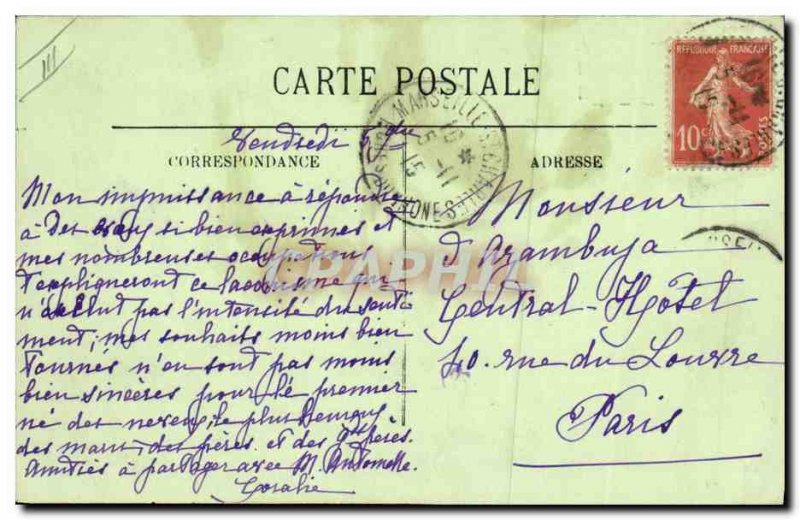 III
CARTE POSTALE
RÉPUBLIQUE FRANÇAISE
10c
POSTES
MARSEILLE
15
Vendredi 5
CORRESPONDANCE
ADRESSE
Mon impuissance à répondre
à des si bien exprimés et
mes nombreuses occupations
t'expliqueront ce laconisme qui
n'exclut pas l'intensité du senti
ment; mes souhaits moins bien
tournés n'en sont pas moins
bien sincères pour le premier
né des neveux, le plus heureux
des maris, des pères et des Gds pères.
Amitiés à partager avec M. Antoinette.
Coralie
Monsieur
d'Azambuja
Central-Hôtel
40. rue du Louvre
Paris
CPAPHIL